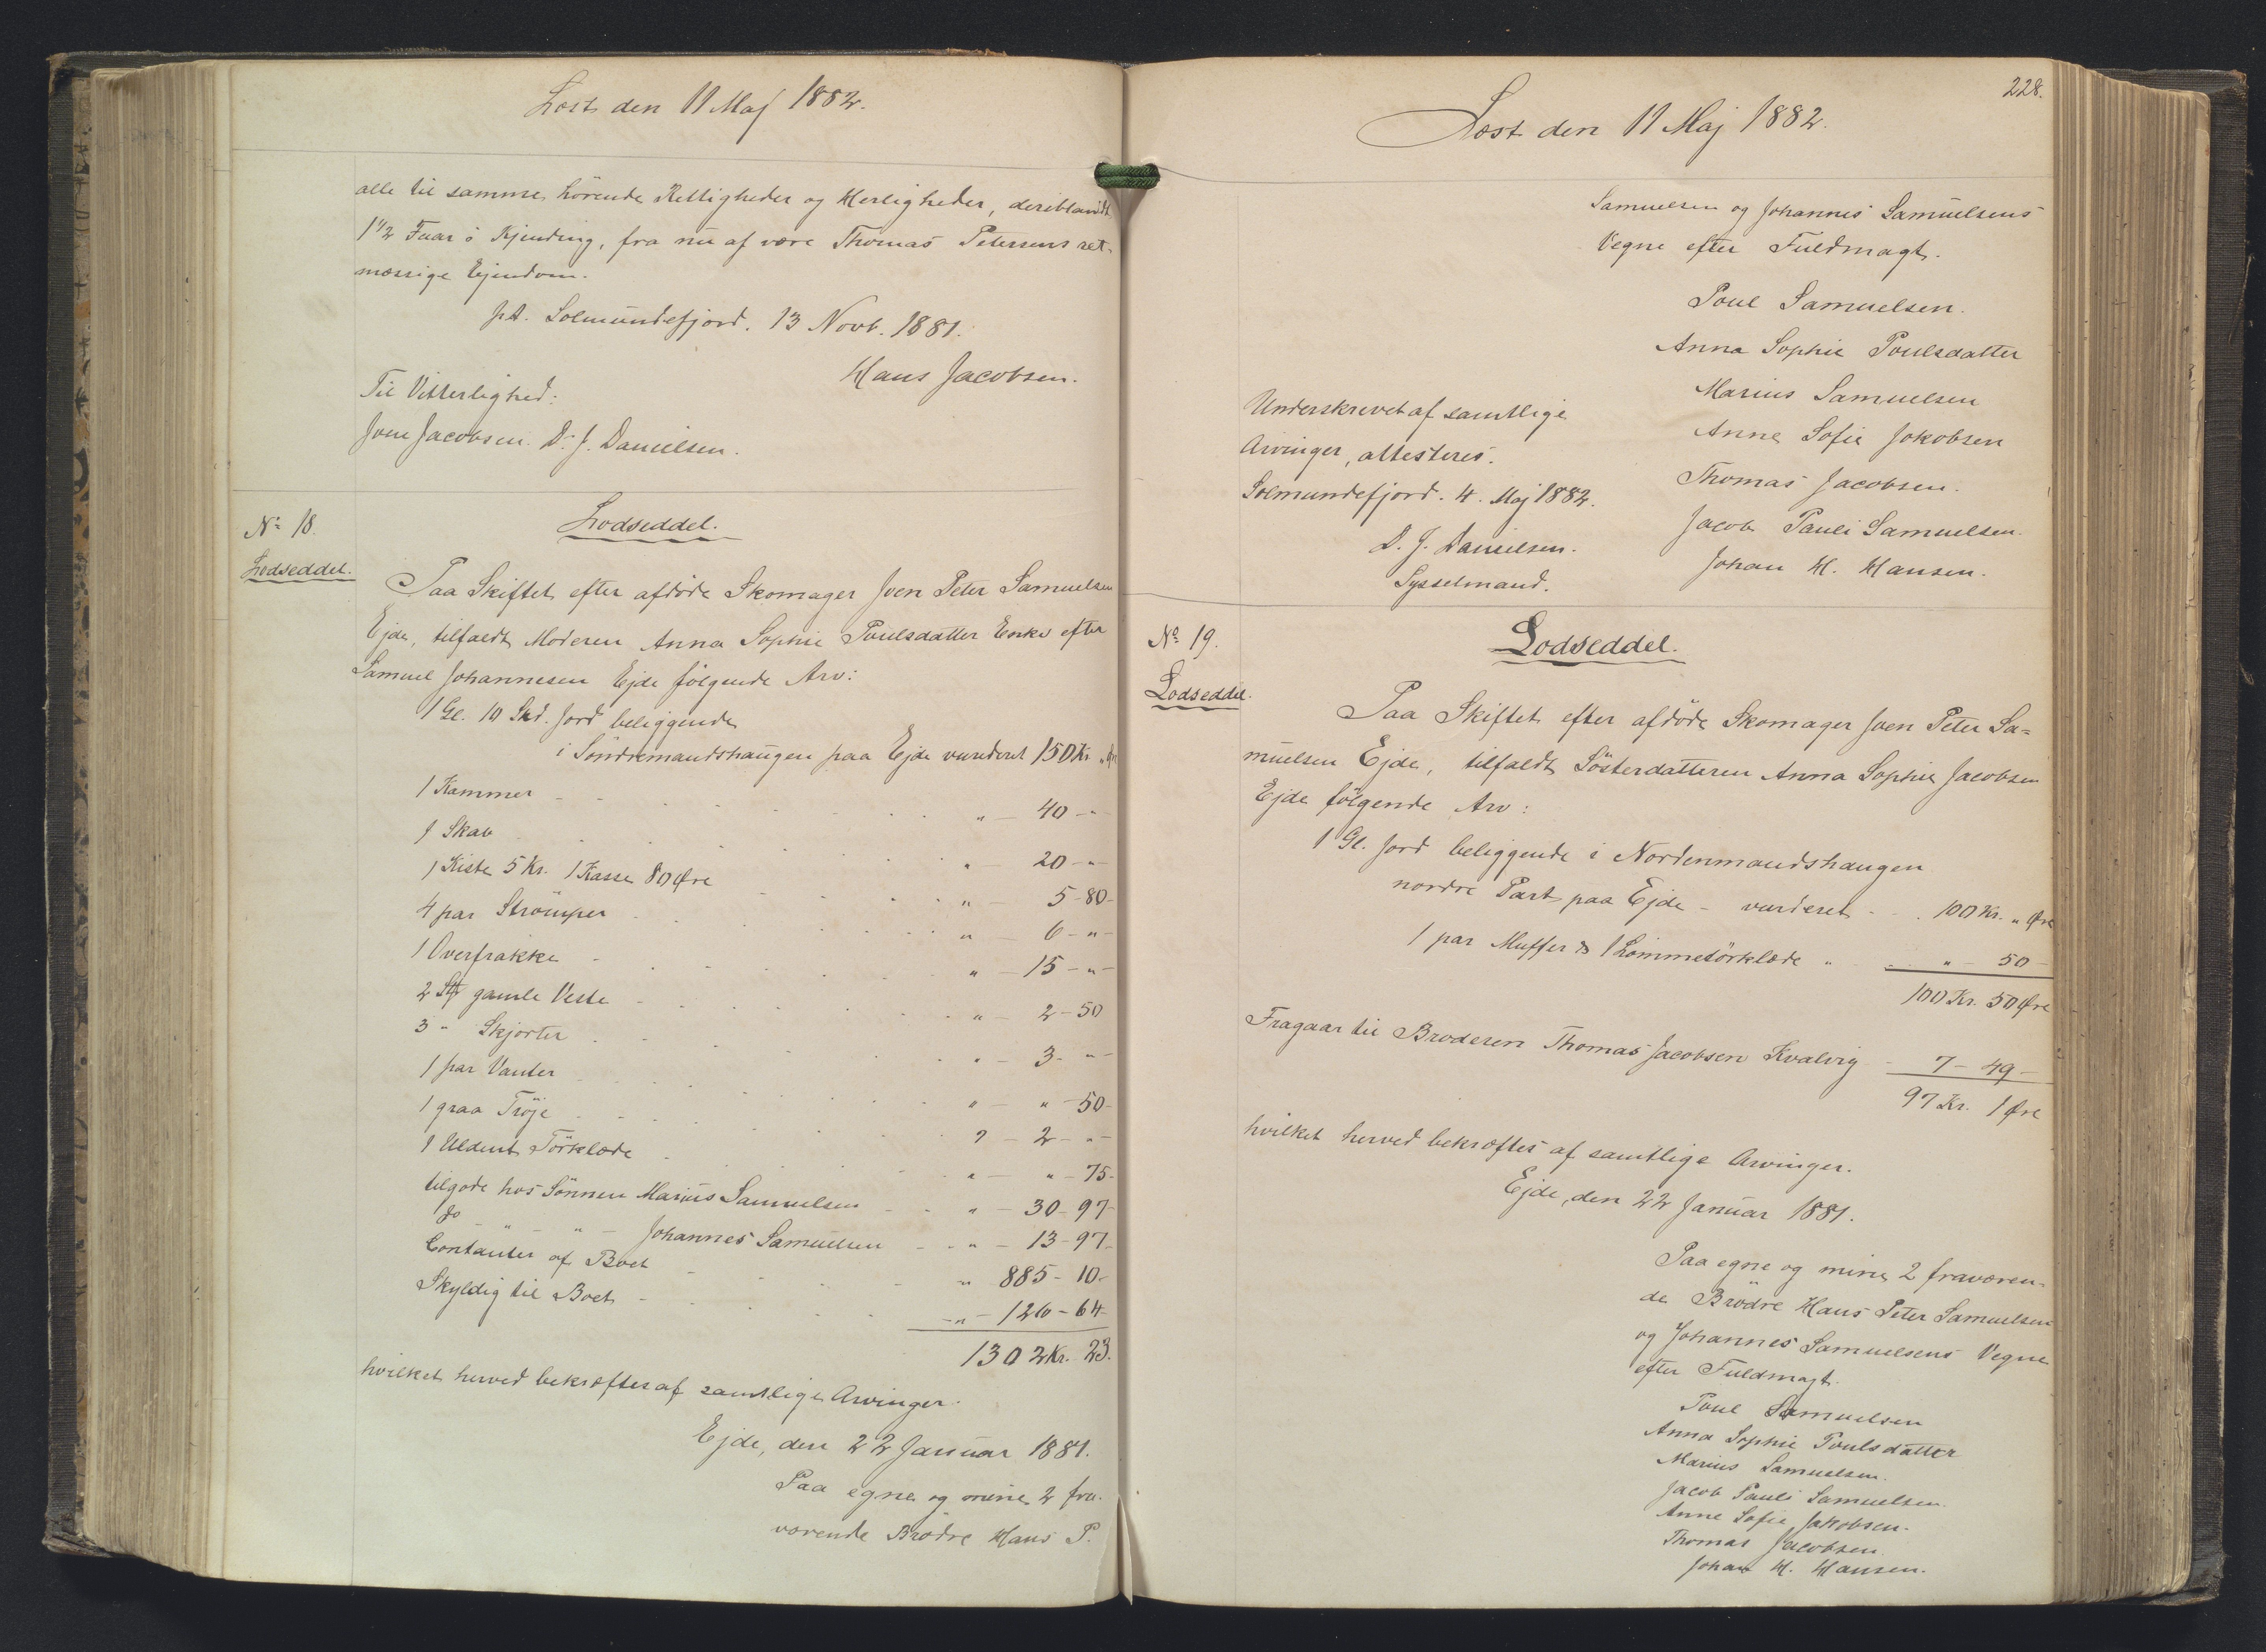 Læst den 11 Maj 1882.
alle til samme hörende Rettigheder og Herligheder, deriblandt
1 1/2 Faar i Kjending, fra nu af være Thomas Petersens ret-
mæssige Ejendom.
p.t. Solmundefjord. 13 Novb. 1881.
Hans Jacobsen.
Til Vitterlighed:
Joen Jacobsen. D. J. Danielsen.
No 18.
Lodseddel.
Lodseddel.
Paa Skiftet efter afdöde Skomager Joen Peter Samuelsen
Ejde, tilfaldt Moderen Anna Sophie Poulsdatter Enke efter
Samuel Johannesen Ejde fölgende Arv:
1 Gl. 10 Skd. Jord beliggende
i Söndremandshaugen paa Ejde vurderet 150 Kr. " Öre
1 Kammer " - 40 - "
1 Skab " - 20 - "
1 Kiste 5 Kr. 1 Kasse 80 Öre " - 5 - 80 -
4 par Strömper " - 6 - " -
1 Overfrakke " - 15 - " -
2 Stk gamle Veste " - 2 - 50
3 " Skjorter " - 3 - " -
1 par Vanter " - " - 50 -
1 graa Tröje " - 2 - " -
1 Uldent Törklæde " - " - 75 -
tilgode hos Sönnen Marius Samuelsen " - 30 - 97 -
do - " - " - Johannes Samuelsen - " - 13 - 97 -
Contanter af Boet " 885 - 10 -
Skyldig til Boet - " - 126 - 64 -
1302 Kr. 23.
hvilket herved bekræftes af samtlige Arvinger.
Ejde, den 22 Januar 1881.
Paa egne og mine 2 fra-
værende Brödre Hans P.
228.
Læst den 11 Maj 1882.
Samuelsen og Johannes Samuelsens
Vegne efter Fuldmagt.
Poul Samuelsen.
Anna Sophie Poulsdatter
Marius Samuelsen
Anne Sofie Jakobsen
Thomas Jacobsen.
Jacob Pauli Samuelsen.
Johan H. Hansen.
Underskrevet af samtlige
Arvinger, attesteres.
Solmundefjord. 4. Maj 1882.
D. J. Danielsen.
Sysselmand.
No 19.
Lodseddel.
Lodseddel.
Paa Skiftet efter afdöde Skomager Joen Peter Sa=
muelsen Ejde, tilfaldt Sösterdatteren Anna Sophie Jacobsen
Ejde fölgende Arv:
1 Gl. Jord beliggende i Nordenmandshaugen
nordre Part paa Ejde - vurderet - . 100 Kr. " Öre
1 par Muffer & 1 Lommetörklæde " " - 50 -
100 Kr. 50 Öre
Fragaar til Broderen Thomas Jacobsen Kvalvig - 7 - 49 -
97 Kr. 1 Öre
hvilket herved bekræftes af samtlige Arvinger.
Ejde, den 22 Januar 1881.
Paa egne og mine 2 fraværen-
de Brödre Hans Peter Samuelsen
og Johannes Samuelsens Vegne
efter Fuldmagt.
Poul Samuelsen
Anna Sophie Poulsdatter
Marius Samuelsen.
Jacob Pauli Samuelsen.
Anne Sofie Jakobsen.
Thomas Jacobsen.
Johan H. Hansen.